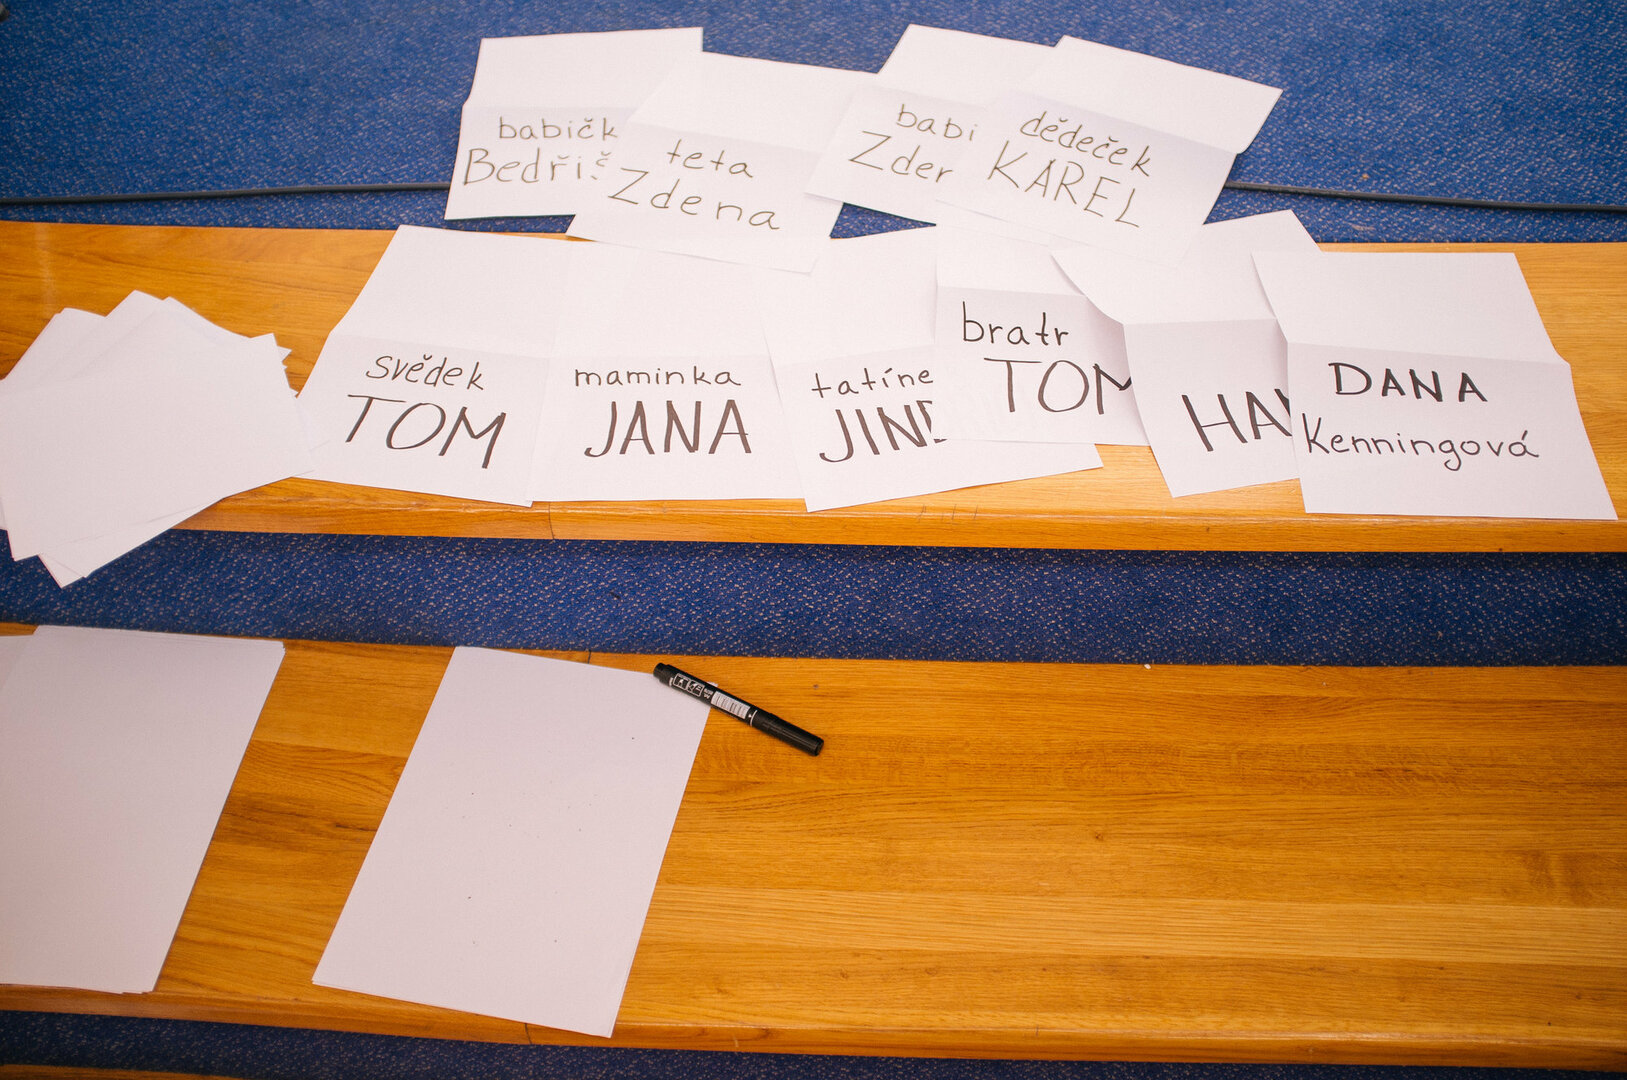 babičk
Bedřiš
teta
Zdena
babi
Zder
dědeček
KAREL
svědek
TOM
maminka
JANA
tatíne
JIND
bratr
TOM
HA
DANA
Kenningová